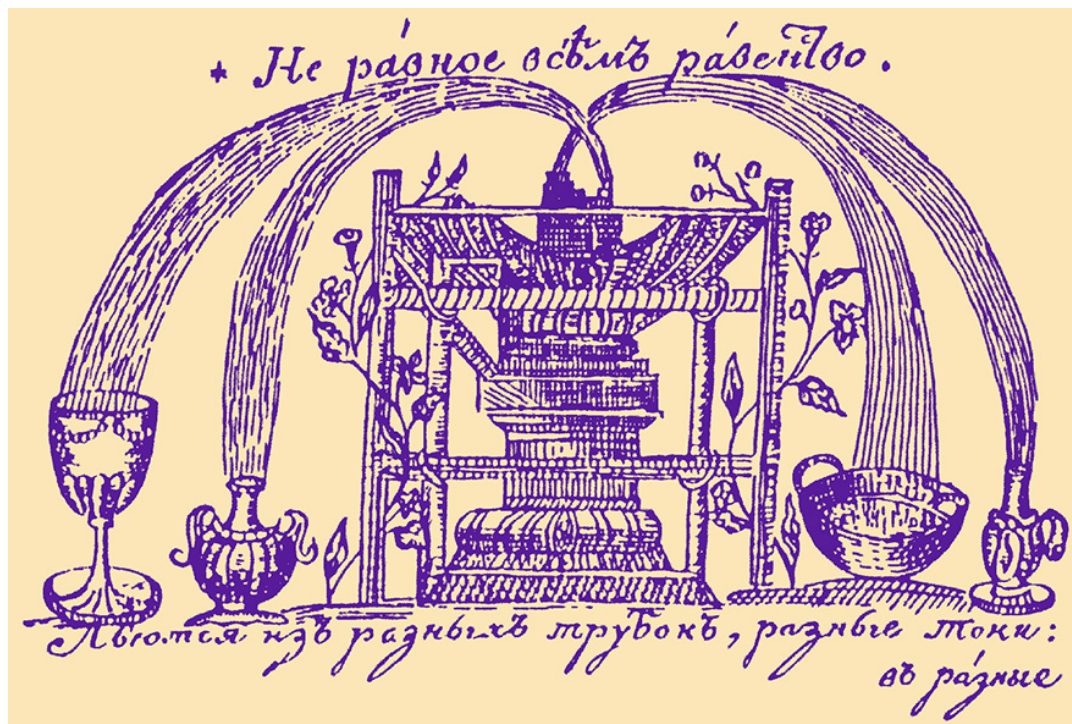 * Не ра́вное всѣ́мъ ра́венство.
Льются изъ разныхъ трубокъ, разные токи:
въ ра́зные